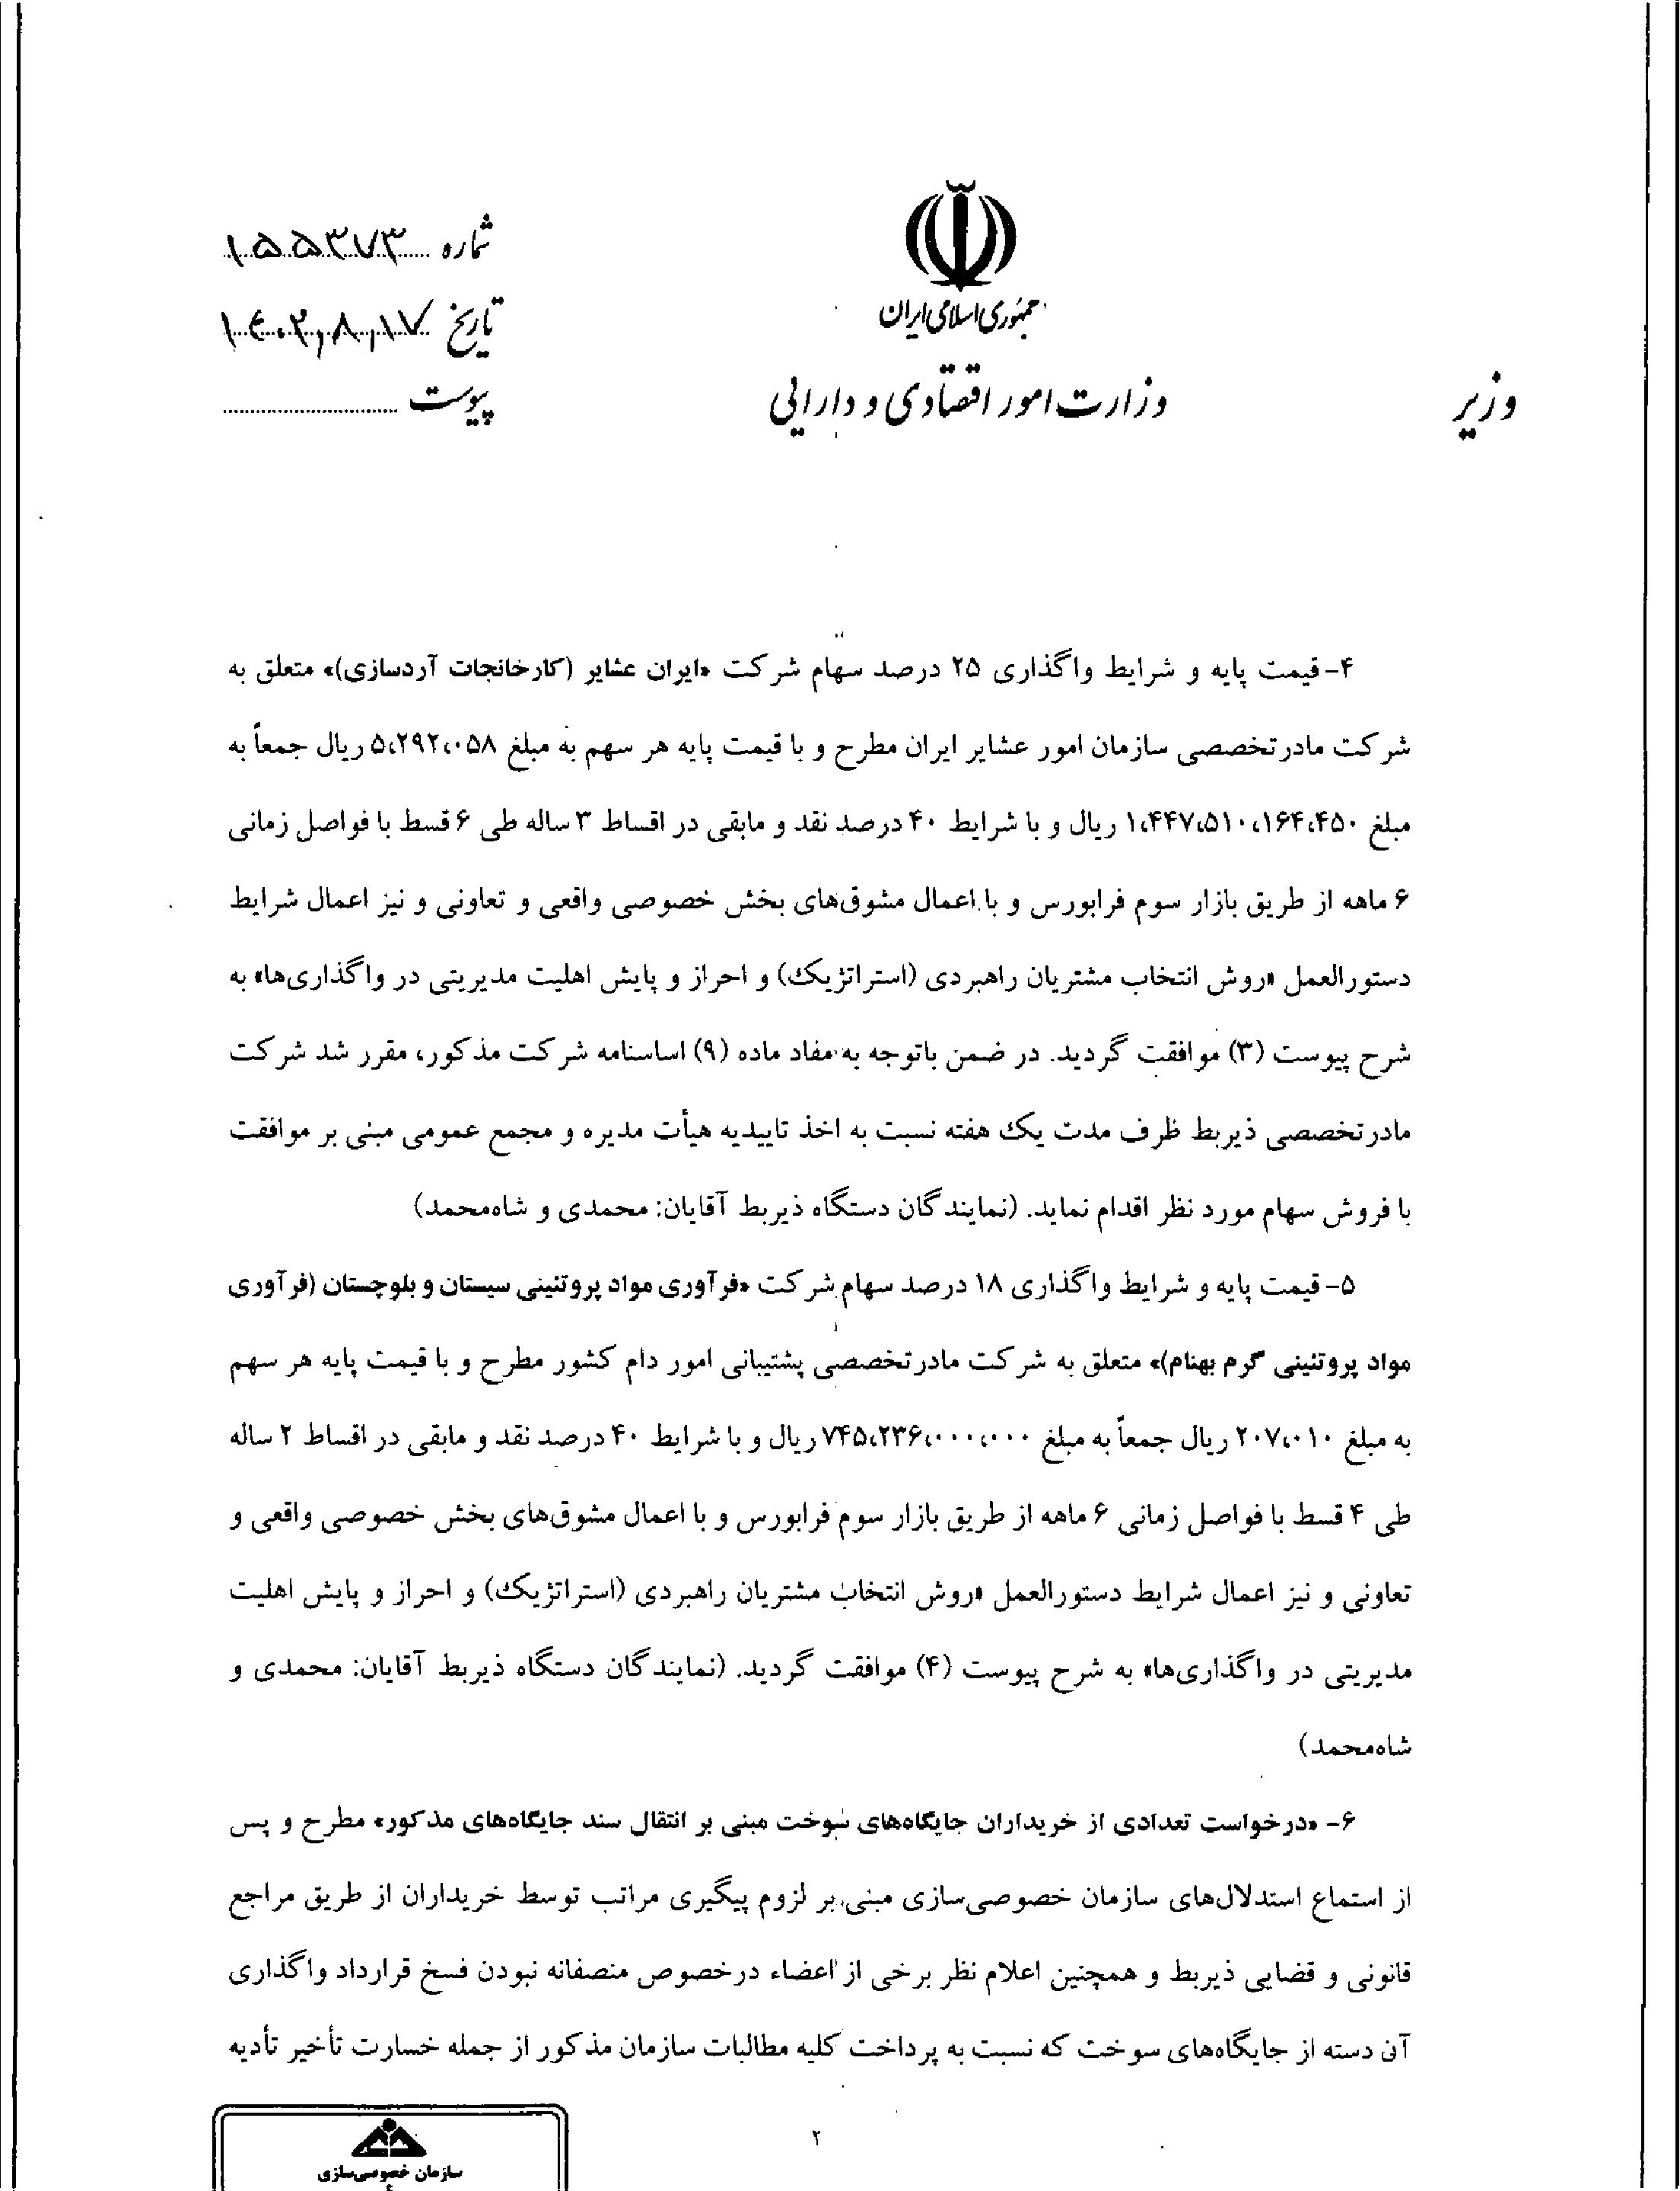 شماره ۱۵۵۳۷۳
تاریخ ۱۴۰۳٫۸٫۱۷
پیوست
جمهوری اسلامی ایران
وزارت امور اقتصادی و دارایی
وزیر
۴- قیمت پایه و شرایط واگذاری ۲۵ درصد سهام شرکت «ایران عشایر (کارخانجات آردسازی)» متعلق به
شرکت مادرتخصصی سازمان امور عشایر ایران مطرح و با قیمت پایه هر سهم به مبلغ ۵،۲۹۲،۰۵۸ ریال جمعاً به
مبلغ ۱،۴۴۷،۵۱۰،۱۶۴،۴۵۰ ریال و با شرایط ۴۰ درصد نقد و مابقی در اقساط ۳ ساله طی ۶ قسط با فواصل زمانی
۶ ماهه از طریق بازار سوم فرابورس و با اعمال مشوق‌های بخش خصوصی واقعی و تعاونی و نیز اعمال شرایط
دستورالعمل «روش انتخاب مشتریان راهبردی (استراتژیک) و احراز و پایش اهلیت مدیریتی در واگذاری‌ها» به
شرح پیوست (۳) موافقت گردید. در ضمن باتوجه به مفاد ماده (۹) اساسنامه شرکت مذکور، مقرر شد شرکت
مادرتخصصی ذیربط ظرف مدت یک هفته نسبت به اخذ تاییدیه هیأت مدیره و مجمع عمومی مبنی بر موافقت
با فروش سهام مورد نظر اقدام نماید. (نمایندگان دستگاه ذیربط آقایان: محمدی و شاه‌محمد)
۵- قیمت پایه و شرایط واگذاری ۱۸ درصد سهام شرکت «فرآوری مواد پروتئینی سیستان و بلوچستان (فرآوری
مواد پروتئینی گرم بهنام)» متعلق به شرکت مادرتخصصی پشتیبانی امور دام کشور مطرح و با قیمت پایه هر سهم
به مبلغ ۲۰۷،۰۱۰ ریال جمعاً به مبلغ ۷۴۵،۲۳۶،۰۰۰،۰۰۰ ریال و با شرایط ۴۰ درصد نقد و مابقی در اقساط ۲ ساله
طی ۴ قسط با فواصل زمانی ۶ ماهه از طریق بازار سوم فرابورس و با اعمال مشوق‌های بخش خصوصی واقعی و
تعاونی و نیز اعمال شرایط دستورالعمل «روش انتخاب مشتریان راهبردی (استراتژیک) و احراز و پایش اهلیت
مدیریتی در واگذاری‌ها» به شرح پیوست (۴) موافقت گردید. (نمایندگان دستگاه ذیربط آقایان: محمدی و
شاه‌محمد)
۶- «درخواست تعدادی از خریداران جایگاه‌های سوخت مبنی بر انتقال سند جایگاه‌های مذکور» مطرح و پس
از استماع استدلال‌های سازمان خصوصی‌سازی مبنی بر لزوم پیگیری مراتب توسط خریداران از طریق مراجع
قانونی و قضایی ذیربط و همچنین اعلام نظر برخی از اعضاء درخصوص منصفانه نبودن فسخ قرارداد واگذاری
آن دسته از جایگاه‌های سوخت که نسبت به پرداخت کلیه مطالبات سازمان مذکور از جمله خسارت تأخیر تأدیه
۲
سازمان خصوصی‌سازی